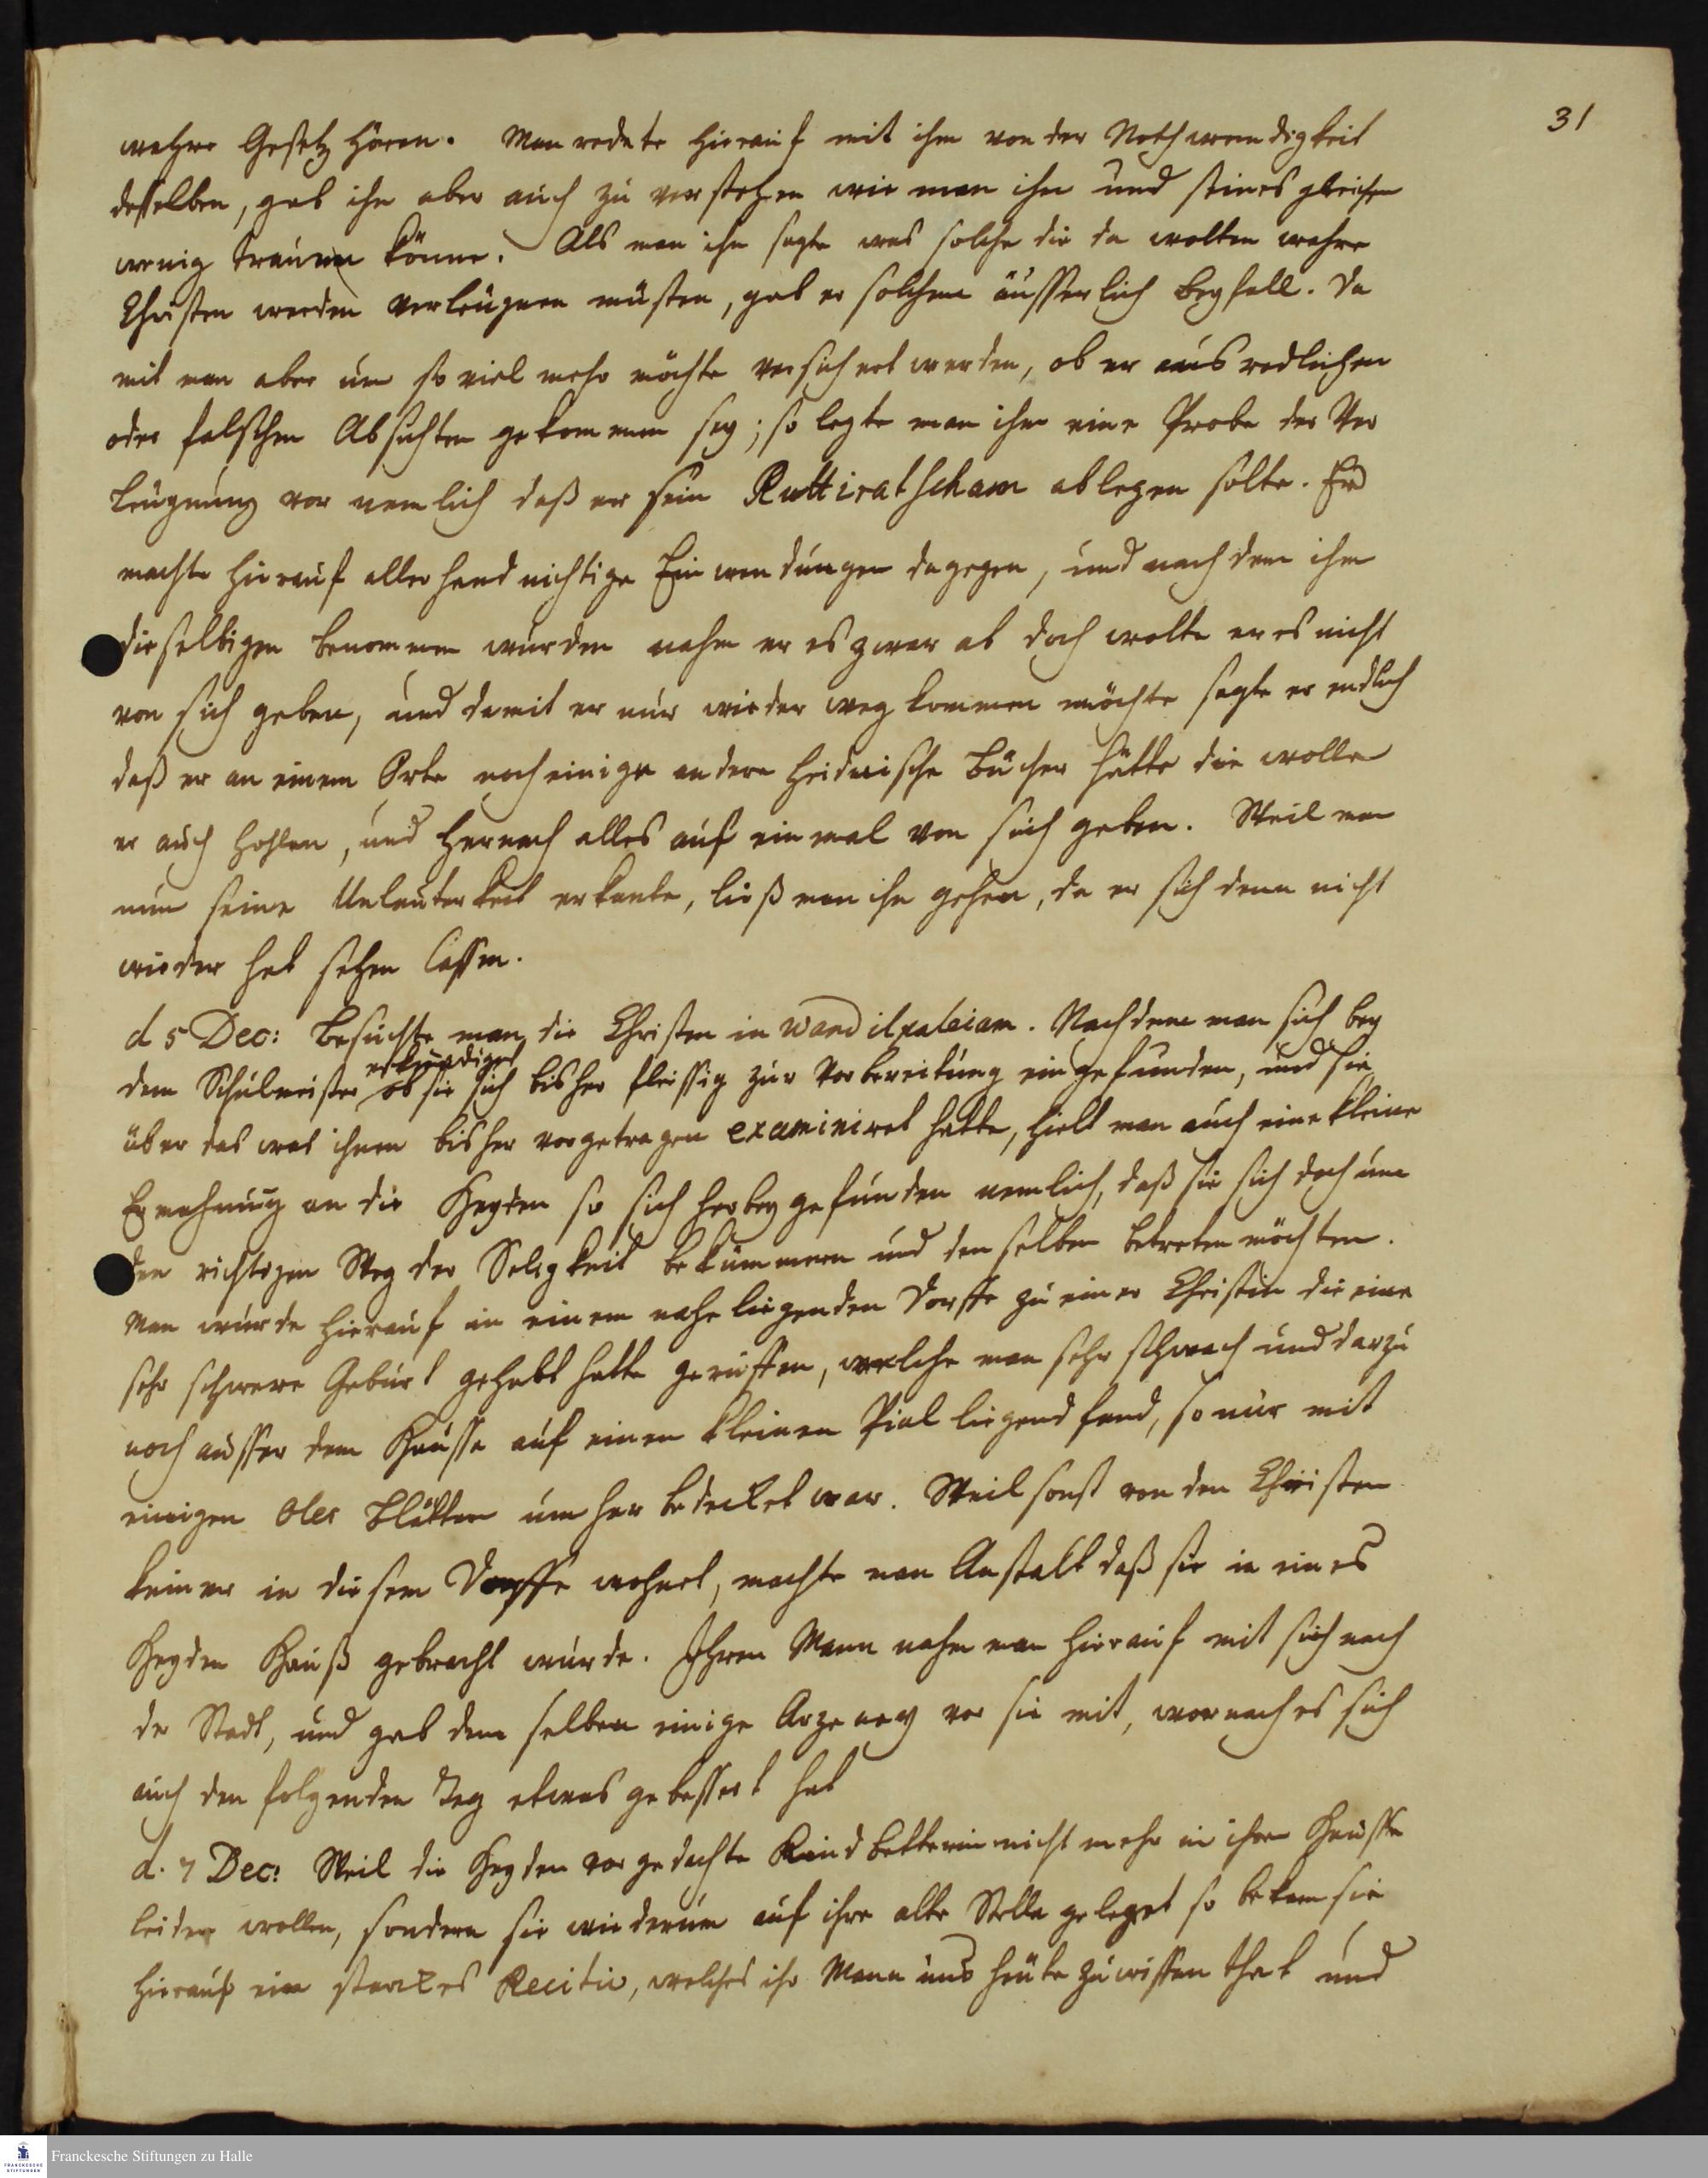 31
wahre Gesetz hören. Man redete hierauf mit ihm von der Nothwendigkeit
desselben, gab ihm aber auch zu verstehen wie man ihm und seines gleichen
wenig trauen könne. Als man ihm sagte was solche die da wolten wahre
Christen werden verleugnen müsten, gab er solchem äusserlich Beyfall. Da
mit man aber um so viel mehr möchte versichert werden, ob er aus redlichen
oder falschen Absichten gekommen sey; so legte man ihm eine Probe der Ver
leugnung vor nemlich daß er sein Ruttiratscham ablegen solte. Er
machte hierauf allerhand nichtige Einwendungen dagegen, und nach dem ihm
dieselbigen benommen wurden nahm er es zwar ab doch wolte er es nicht
von sich geben, und damit er nur wieder weg kommen möchte sagte er endlich
daß er an einem Orte noch einige andere heidnische Bücher hätte die wolle
er auch hohlen, und hernach alles auf ein mal von sich geben. Weil man
nun seine Unlauterkeit erkante, ließ man ihn gehen, da er sich denn nicht
wieder hat sehen lassen.
d 5 Dec: Besuchte man die Christen in Wandilpaleiam. Nachdem man sich bey
erkundiget
dem Schulmeister ob sie sich bisher fleissig zur Vorbereitung eingefunden, und sie
über das was ihnen bisher vorgetragen examiniret hatte, hielt man auch eine kleine
Ermahnung an die Heyden so sich herbey gefunden nemlich, daß sie sich doch um
den richtigen Weg der Seligkeit bekümmern und denselben betreten möchten.
Man wurde hierauf in einem nahe liegenden Dorffe zu einer Christin die eine
sehr schwere Geburt gehabt hatte geruffen, welche man sehr schwach und darzu
noch ausser dem Hausse auf einen kleinen Pial liegend fand, so nur mit
einigen Oles Blätter umher bedecket war. Weil sonst von den Christen
keiner in diesem Dorffe wohnet, machte man Anstalt daß sie in eines
Heyden Hauß gebracht wurde. Ihren Mann nahm man hierauf mit sich nach
der Stadt, und gab dem selben einige Arzeney vor sie mit, wornach es sich
auch den folgenden Tag etwas gebessert hat
d. 7 Dec: Weil die Heyden vorgedachte Kindbetterin nicht mehr in ihrem Hausse
leiden wollen, sondern sie wiederum auf ihre alte Stelle geleget so bekam sie
hierauf ein starckes Recitiv, welches ihr Mann uns heute zu wissen that und
Franckesche Stiftungen zu Halle